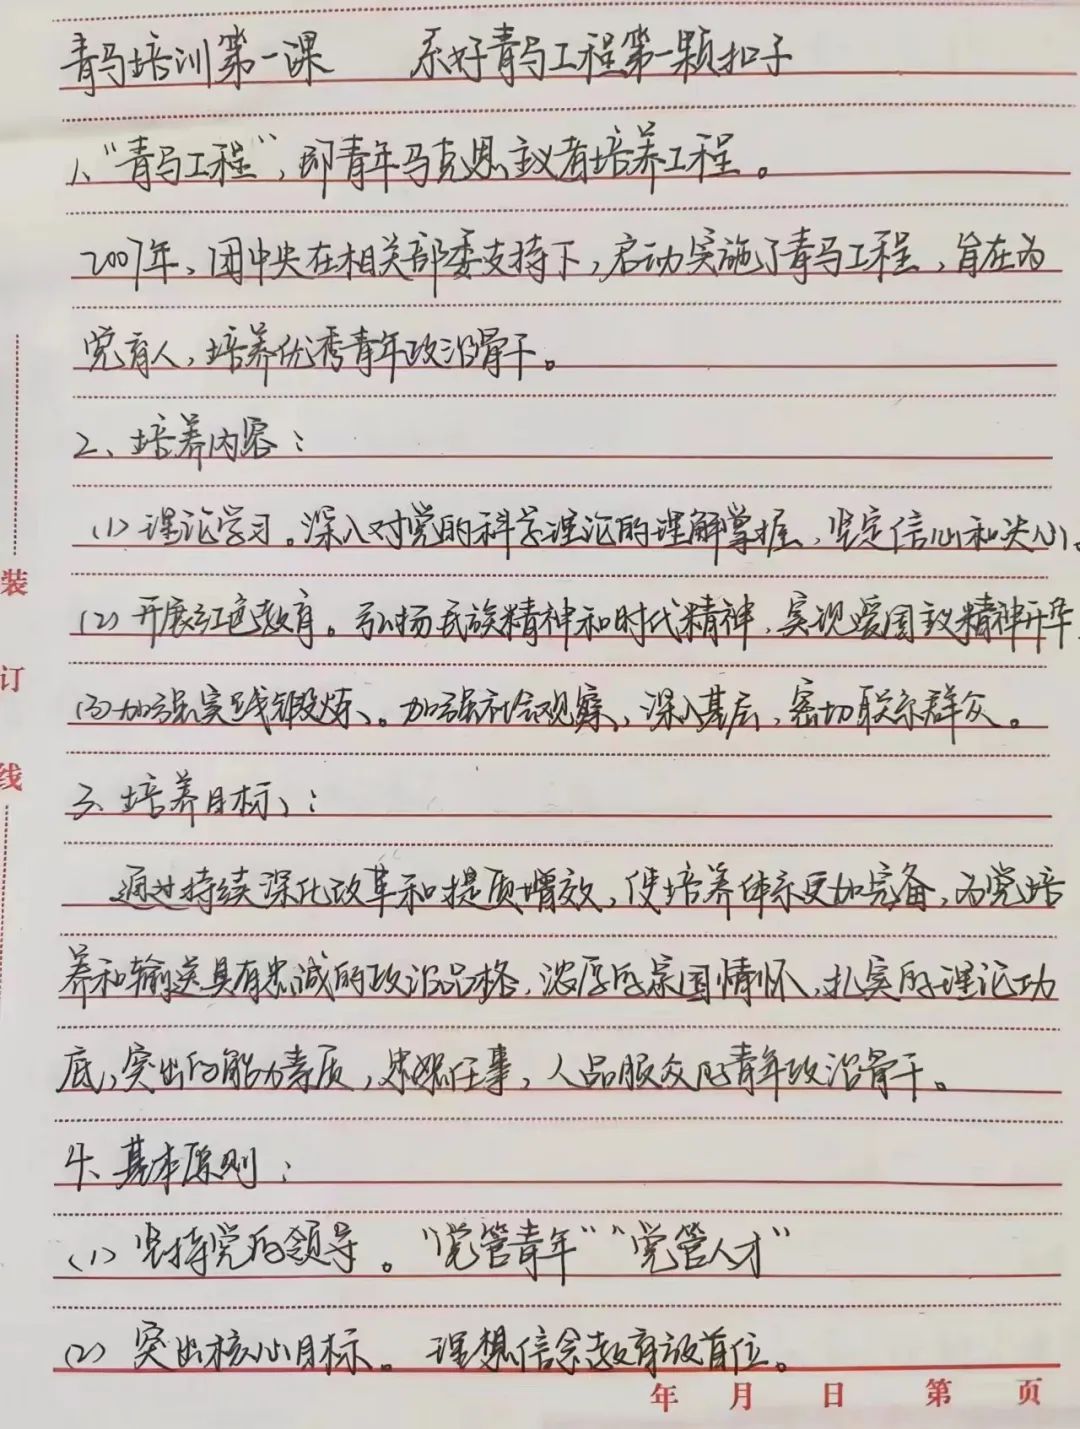 青马培训第一课 系好青马工程第一颗扣子
1、“青马工程”,即青年马克思主义者培养工程。
2007年,团中央在相关部委支持下,启动实施了青马工程,旨在为
党育人,培养优秀青年政治骨干。
2、培养内容:
(1)理论学习。深入对党的科学理论的理解掌握,坚定信心和决心。
(2)开展红色教育。弘扬民族精神和时代精神,实现爱国主义精神升华
(3)加强实践锻炼。加强社会观察,深入基层,密切联系群众。
3、培养目标:
通过持续深化改革和提质增效,使培养体系更加完备,为党培
养和输送具有忠诚的政治品格,浓厚的家国情怀,扎实的理论功
底,突出的能力素质,忠恕任事,人品服众的青年政治骨干。
4、基本原则:
(1)坚持党的领导。“党管青年”“党管人才”
(2)突出核心目标。理想信念教育放首位。
装
订
线
年 月 日 第 页